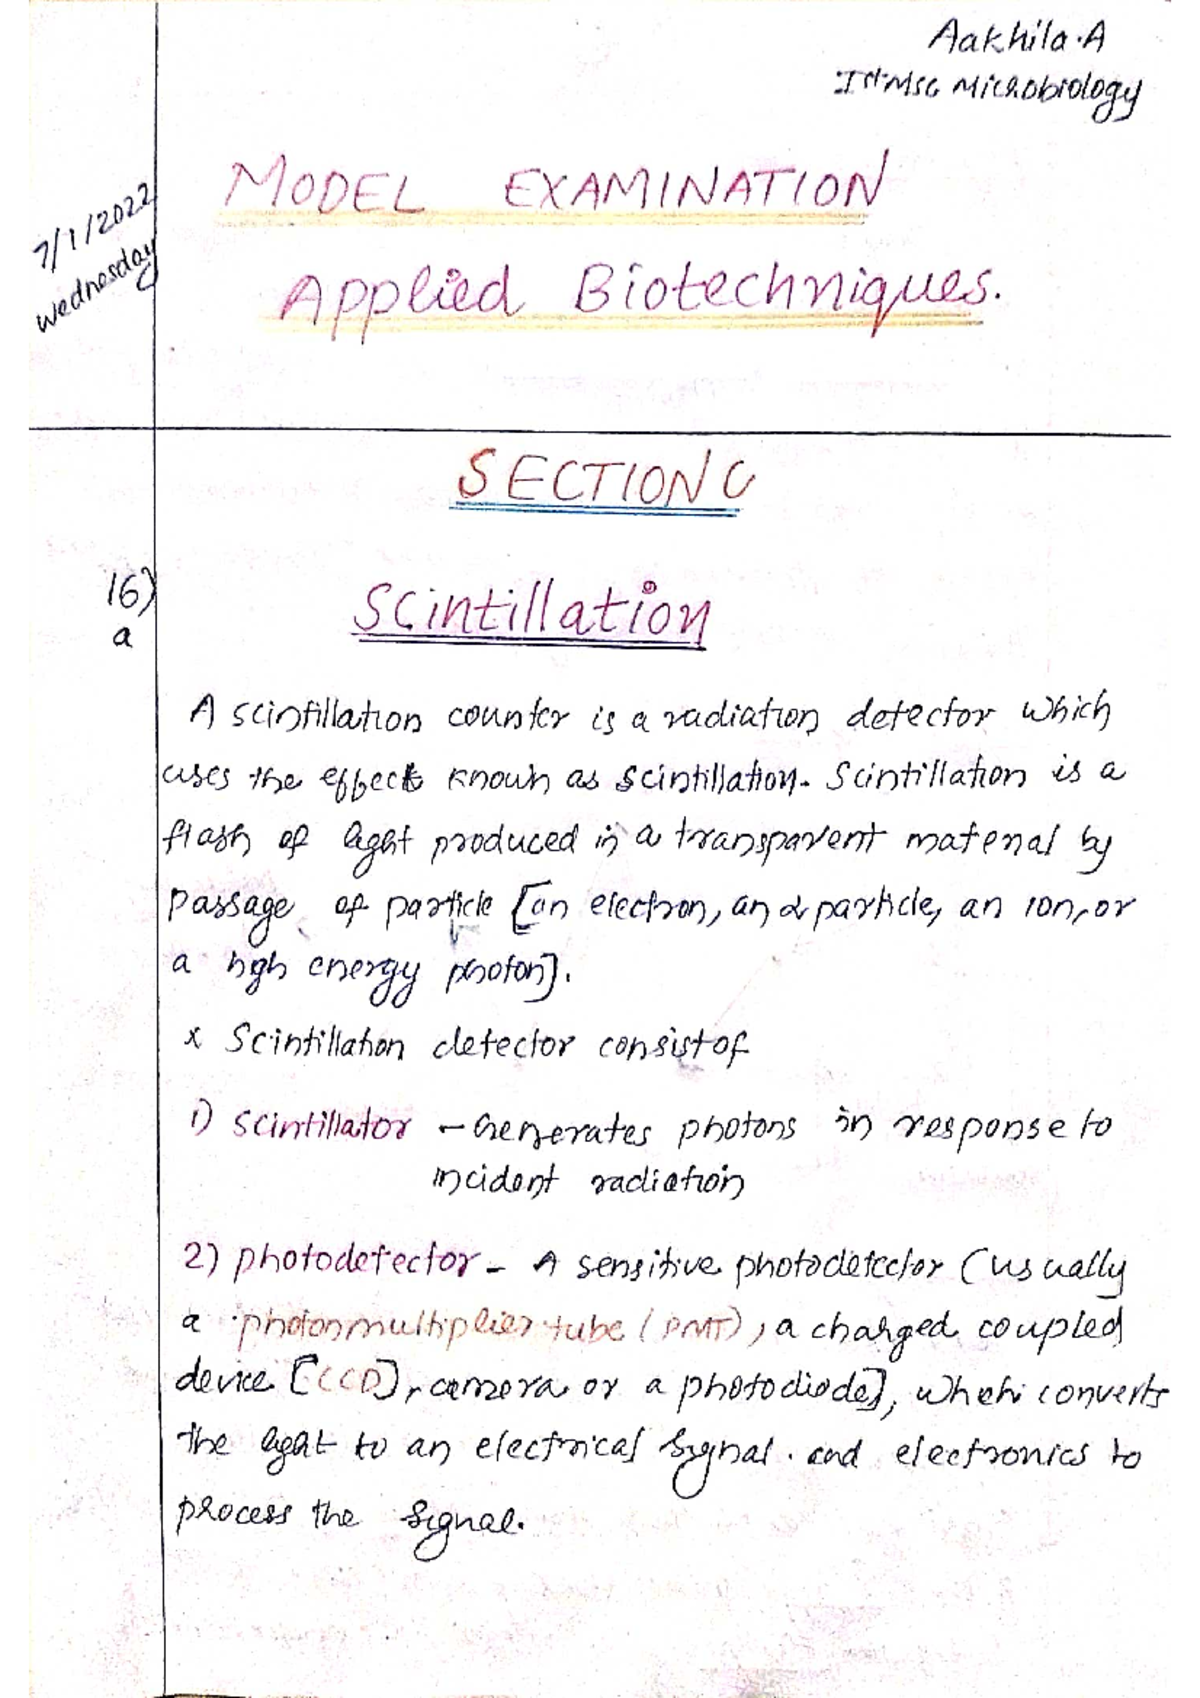 Aakhila.A
Ist Msc Microbiology
7/1/2022
Wednesday
MODEL EXAMINATION
Applied Biotechniques.
SECTION C
16)
a
Scintillation
A scintillation counter is a radiation detector which
uses the effect known as scintillation. Scintillation is a
flash of light produced in a transparent material by
passage of particle [an electron, an α particle, an ion, or
a high energy photon].
x Scintillation detector consist of
1) Scintillator - Generates photons in response to
incident radiation
2) photodetector - A sensitive photodetector (usually
a photonmultiplier tube (PMT), a charged coupled
device [CCD], camera or a photodiode], which converts
the light to an electrical signal. and electronics to
process the signal.